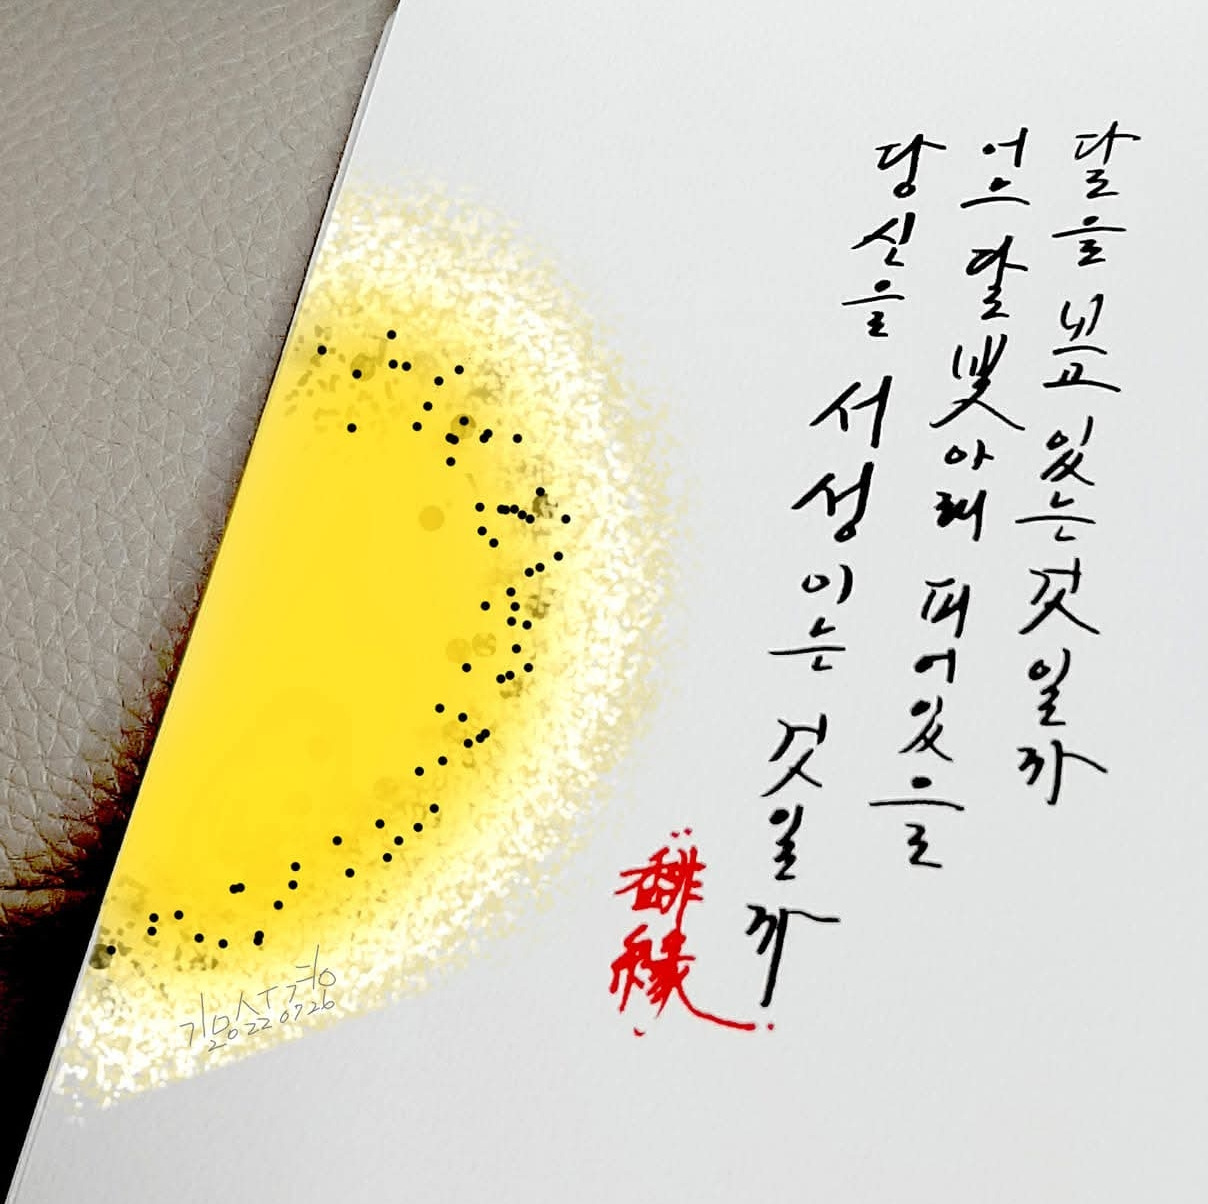 달을 보고 있는 것일까
어느 달빛 아래 피어있을
당신을 서성이는 것일까
20220726